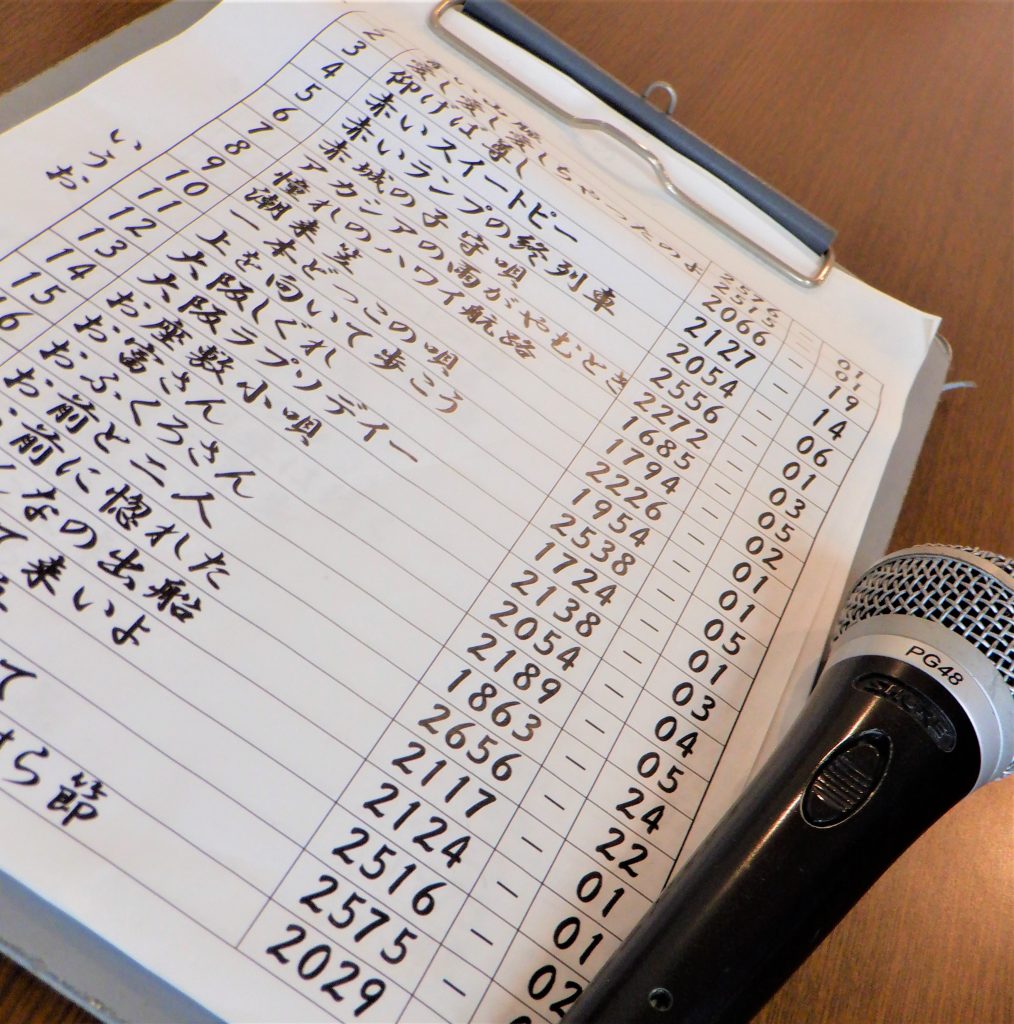 2 ちゃったのよ 2576 - 01
3 仰げば尊し 2515 - 01
4 赤いスイートピー 2066 - 19
5 赤いランプの終列車 2127 - 14
6 赤城の子守唄 2054 - 06
7 アカシアの雨がやむとき 2556 - 01
8 憧れのハワイ航路 2272 - 03
い 9 潮来笠 1685 - 05
10 一本どっこの唄 1794 - 02
う 11 上を向いて歩こう 2226 - 01
お 12 大阪しぐれ 1954 - 01
13 大阪ラプソディー 2538 - 05
14 お座敷小唄 1724 - 01
15 お富さん 2138 - 03
16 おふくろさん 2054 - 04
お前と二人 2189 - 05
前に惚れた 1863 - 24
なの出船 2656 - 22
て来いよ 2117 - 01
2124 - 01
て 2516 - 02
ら節 2575 -
2029 -
PG48
SHURE